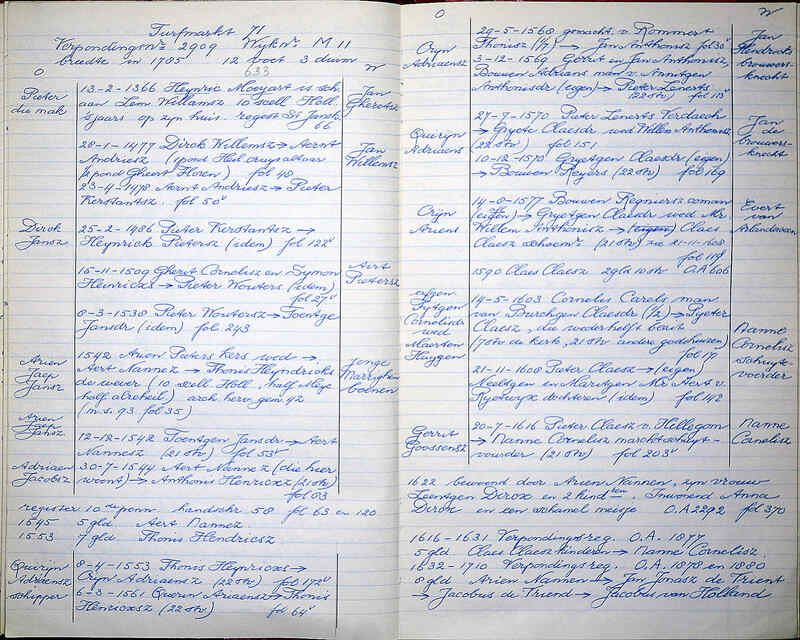 Turfmarkt 71
Verpondingsnr 2909 Wyknr M 11
breedte in 1785 12 voet 3 duim
633
O
W
Pieter
die mak
13-2-1366 Heynric Moeyart is sch.
aan Dem Willamsz 10 scell Holl.
's jaars op zyn huis. regest St Jansk
66
Jan
Gherytsz
28-1-1477 Dirck Willemsz → Aernt
Andriesz (1 pond Heil cruys altaer
½ pond Gheert Floren) fol 48
23-4-1478 Aernt Andriesz → Pieter
Kerstantsz. fol 50v
Jan
Willemsz
Dirck
Jansz
25-2-1486 Pieter Kerstantsz →
Heynrick Pietersz (idem) fol 122v
15-11-1509 Gherit Cornelisz en Symon
Heinricxs → Pieter Wouters (idem)
fol 27v
Aert
Pietersz
8-3-1538 Pieter Woutersz → Toentge
Jansdr (idem) fol 243
Arien
Jaep
Jansz
1542 Arien Pieters kers wed →
Aert Nannez → Thonis Heyndricks
de wever (10 scell Holl, half Mey
half alreheil) arch herv. gem. 42
(m.s. 93 fol 35)
Jonge
Marrighen
boenen
Arien
Jaep
Jansz
12-12-1542 Toentgen Jansdr → Aert
Nannesz (21 str) fol 53v
Adriaen
Jacobsz
30-7-1544 Aert Nannez (die hier
woont) → Anthonis Henricxz (21 str)
fol 83
register 10de penn. handschr. 58 fol 63 en 120
1545 5 gld Aert Nannez
1553 7 gld Thonis Hendricsz
Quirijn
Adriaensz
schipper
8-4-1553 Thonis Heynricxs →
Cryn Adriaensz (22 str) fol 172v
6-3-1561 Queryn Ariaensz → Thonis
Henricxsz (22 str) fol 64v
O
W
Cryn
Adriaensz
29-5-1568 gemacht. v. Rommert
Thonisz (1/7) → Jan Anthonisz fol 30v
3-12-1569 Gerrit en Jan Anthonisz,
Bouwen Adriaens man v. Anntgen
Anthonisdr (eigen) → Pieter Lenerts
(22 str) fol 113
Jan
Hendricks
brouwers-
knecht
Queryn
Adriaens
27-7-1570 Pieter Lenerts Verdaech
→ Gryete Claesdr wed Willem Anthonisz
(22 str) fol 151
10-12-1570 Gryetgen Claesdr (eigen)
→ Bouwen Reyers (22 str) fol 169
Jan
de
brouwers-
knecht
Cryn
Ariens
14-8-1577 Bouwen Regniersz coman
(eigen) → Gryetgen Claesdr wed Mr.
Willem Anthonisz → (eigen) Claes
Claesz schoenr (21 str) zie 21-11-1608
fol 118v
1590 Claes Claesz 2 gld 10 str O.A 606
Evert
van
Arlandveen
erfgen.
Fytgen
Cornelisdr
wed
Maerten
Huygen
14-5-1603 Cornelis Carels man
van Burchgen Claesdr (½) → Pyeter
Claesz, die wederhelft bezit
(70 str de kerk, 21 str andere godshuizen)
fol 17
21-11-1608 Pieter Claesz → (eigen)
Neeltgen en Maritgen Mr Aert v.
Ryswyk dochteren (idem) fol 142
Nanne
Cornelisz
schuyte-
voerder
Gerrit
Goossensz
20-7-1616 Pieter Claesz v. Hellegom
→ Nanne Cornelisz marcktschuyt-
voerder (21 str) fol 203v
Nanne
Cornelisz
1622 bewoond door Arien Nannen, zyn vrouw
Leentgen Dircx en 2 kinderen. Inwoond Anna
Dircx en een schamel meisje O.A 2292 fol 370
1616-1631 Verpondingsreg. O.A. 1877
5 gld Claes Claesz kinderen → Nanne Cornelisz.
1632-1710 Verpondingsreg. O.A. 1878 en 1880
8 gld Arien Nannen → Jan Jonasz de Trient
→ Jacobus de Triend → Jacobus van Holland